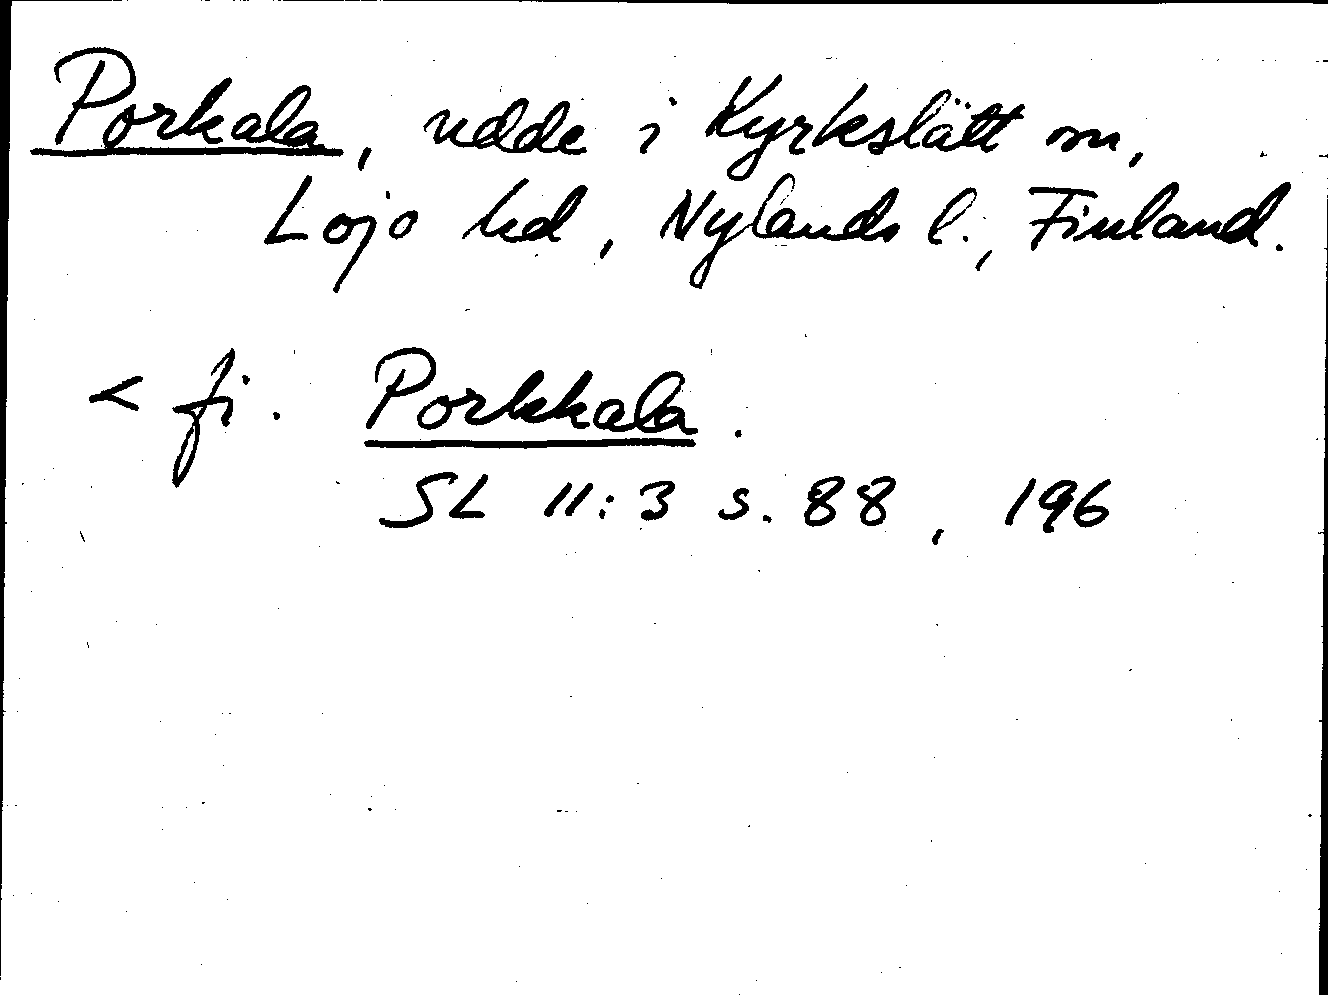 Porkala, udde i Kyrkslätt sn,
Lojo hd, Nylands l., Finland.
< fi. Porkkala.
SL 11:3 s. 88, 196